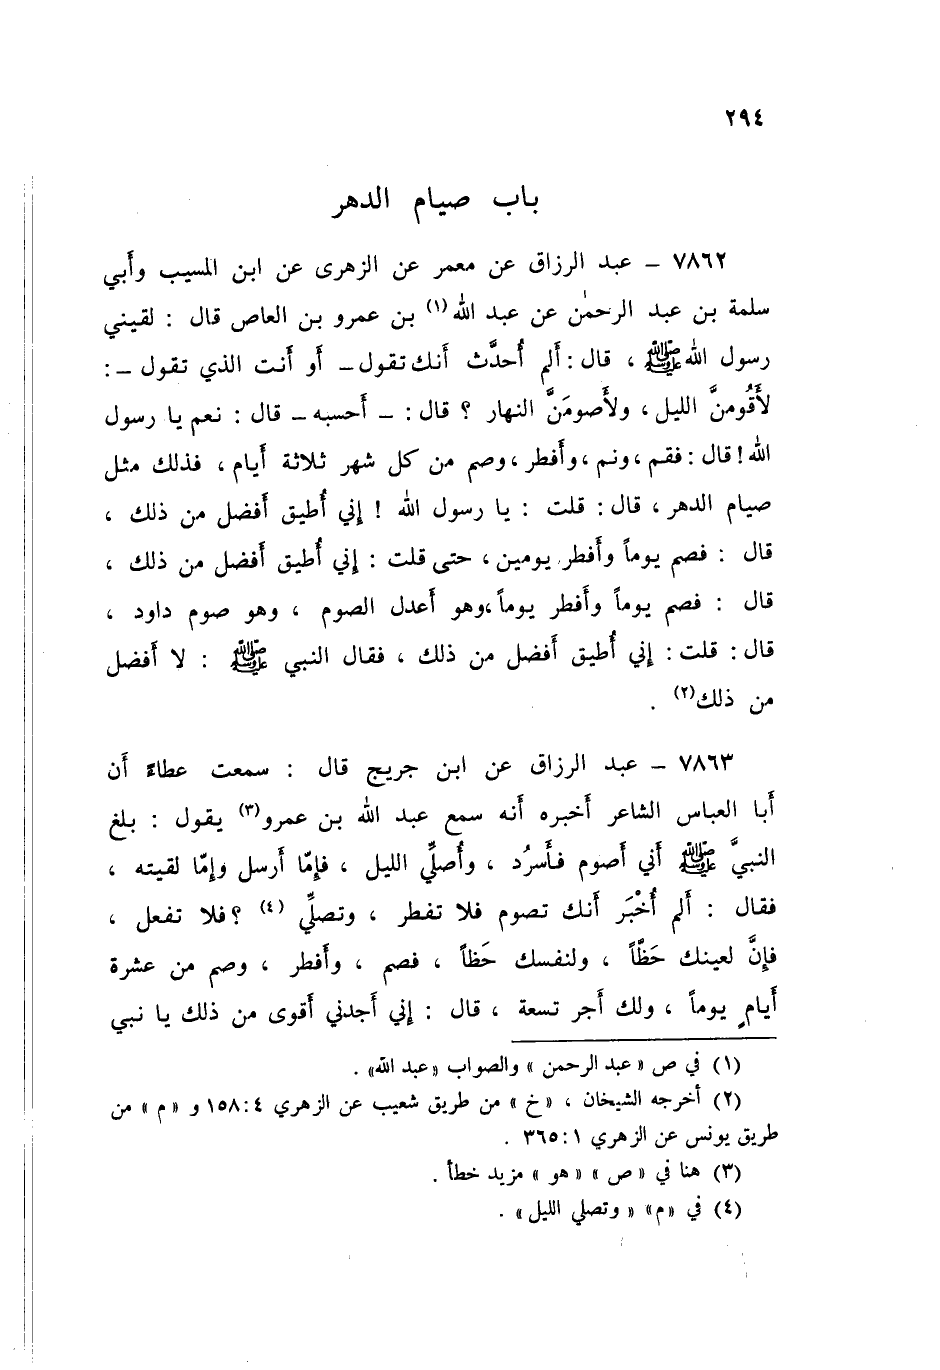 ٢٩٤
باب صيام الدهر
٧٨٦٢ – عبد الرزاق عن معمر عن الزهرى عن ابن المسيب وأبي
سلمة بن عبد الرحمٰن عن عبد الله(١) بن عمرو بن العاص قال : لقيني
رسول الله ﷺ ، قال : ألم أُحدَّث أنك تقول – أو أنت الذي تقول – :
لأَقُومنَّ الليل ، ولأَصومَنَّ النهار ؟ قال : – أحسبه – قال : نعم يا رسول
الله ! قال : فقم ، ونم ، وأفطر ، وصم من كل شهر ثلاثة أيام ، فذلك مثل
صيام الدهر ، قال : قلت : يا رسول الله ! إني أُطيق أفضل من ذلك ،
قال : فصم يوماً وأفطر يومين ، حتى قلت : إني أُطيق أفضل من ذلك ،
قال : فصم يوماً وأفطر يوماً ، وهو أعدل الصوم ، وهو صوم داود ،
قال : قلت : إني أُطيق أفضل من ذلك ، فقال النبي ﷺ : لا أفضل
من ذلك(٢) .
٧٨٦٣ – عبد الرزاق عن ابن جريج قال : سمعت عطاءً أن
أبا العباس الشاعر أخبره أنه سمع عبد الله بن عمرو(٣) يقول : بلغ
النبيَّ ﷺ أني أصوم فأسرُد ، وأُصلِّي الليل ، فإمّا أرسل وإمّا لقيته ،
فقال : ألم أُخْبَر أنك تصوم فلا تفطر ، وتصلِّي (٤) ؟ فلا تفعل ،
فإنَّ لعينك حَظّاً ، ولنفسك حَظاً ، فصم ، وأفطر ، وصم من عشرة
أيامٍ يوماً ، ولك أجر تسعة ، قال : إني أجدني أقوى من ذلك يا نبي
(١) في ص « عبد الرحمن » والصواب «عبد الله» .
(٢) أخرجه الشيخان ، « خ » من طريق شعيب عن الزهري ٤ : ١٥٨ و « م » من
طريق يونس عن الزهري ١ : ٣٦٥ .
(٣) هنا في « ص » « هو » مزيد خطأ .
(٤) في «م» « وتصلي الليل» .